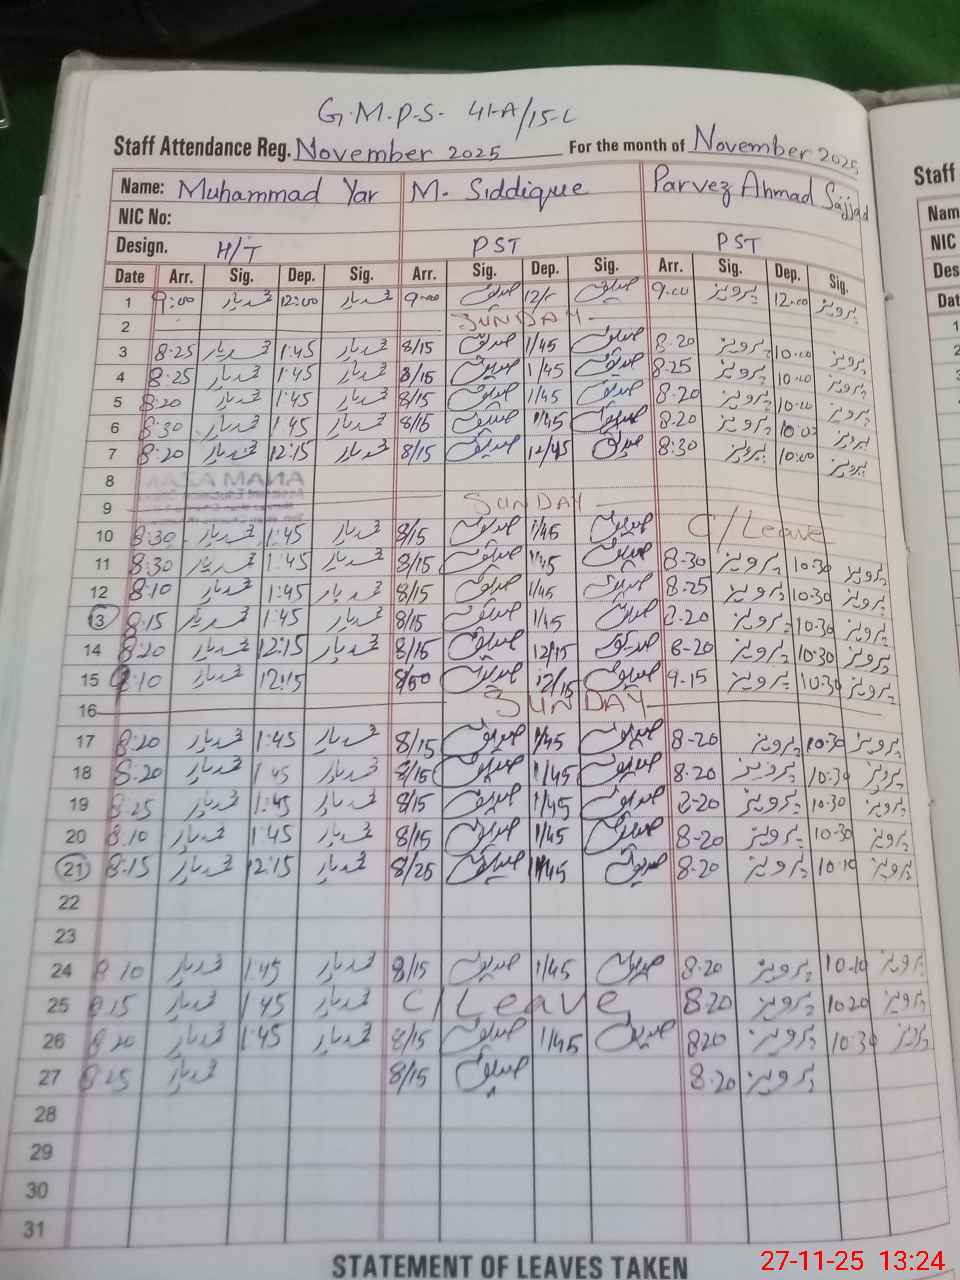 G.M.P.S. 41-A/15-L
Staff Attendance Reg. November 2025 For the month of November 2025
Name: Muhammad Yar M. Siddique Parvez Ahmad Sajjad
NIC No:
Design. H/T PST PST
Date Arr. Sig. Dep. Sig. Arr. Sig. Dep. Sig. Arr. Sig. Dep. Sig.
1 9:00 محمد یار 12:00 محمد یار 9-00 صدیق صدیق 9.00 پرویز 12.00 پرویز
2 SUNDAY
3 8:25 محمد یار 1:45 محمد یار 8/15 صدیق 1/45 صدیق 8.20 پرویز 10.00 پرویز
4 8:25 محمد یار 1:45 محمد یار 8/15 صدیق 1/45 صدیق 8.25 پرویز 10.00 پرویز
5 8:20 محمد یار 1:45 محمد یار 8/15 صدیق 1/45 صدیق 8.20 پرویز 10.00 پرویز
6 8:30 محمد یار 1:45 محمد یار 8/15 صدیق 1/45 صدیق 8.20 پرویز پرویز
7 8:20 محمد یار 12:15 محمد یار 8/15 صدیق 12/45 صدیق 8:30 پرویز 10:00 پرویز
8
9 SUNDAY
10 8:30 محمد یار 1:45 محمد یار 8/15 صدیق 1/45 صدیق C/Leave
11 8:30 محمد یار 1:45 محمد یار 8/15 صدیق 1/45 صدیق 8-30 پرویز 10.30 پرویز
12 8:10 محمد یار 1:45 محمد یار 8/15 صدیق 1/45 صدیق 8.25 پرویز 10.30 پرویز
13 8:15 محمد یار 1:45 محمد یار 8/15 صدیق 1/45 صدیق 8-20 پرویز 10-30 پرویز
14 8:20 محمد یار 12:15 محمد یار 8/15 صدیق 12/15 صدیق 8-20 پرویز 10-30 پرویز
15 9:10 محمد یار 12:15 صدیق 12/15 صدیق 9-15 پرویز 10.30 پرویز
16 SUNDAY
17 8:20 محمد یار 1:45 محمد یار 8/15 صدیق 1/45 صدیق 8-20 پرویز 10.30 پرویز
18 8:20 محمد یار 1:45 محمد یار 8/15 صدیق 1/45 صدیق 8.20 پرویز 10.30 پرویز
19 8:25 محمد یار 1:45 محمد یار 8/15 صدیق 1/45 صدیق 8-20 پرویز 10-30 پرویز
20 8:10 محمد یار 1:45 محمد یار 8/15 صدیق 1/45 صدیق 8-20 پرویز 10-30 پرویز
21 8:15 محمد یار 12:15 محمد یار 8/25 صدیق 1/45 صدیق 8.20 پرویز 10.10 پرویز
22
23
24 8:10 محمد یار 1:45 محمد یار 8/15 صدیق 1/45 صدیق 8.20 پرویز 10.10 پرویز
25 8:15 محمد یار 1:45 محمد یار C/Leave 8.20 پرویز 10.20 پرویز
26 8:20 محمد یار 1:45 محمد یار 8/15 صدیق 1/45 صدیق 8.20 پرویز 10.30 پرویز
27 8:25 محمد یار 8/15 صدیق 8.20 پرویز
28
29
30
31
STATEMENT OF LEAVES TAKEN
27-11-25 13:24
Staff
Nam
NIC
Des
Dat